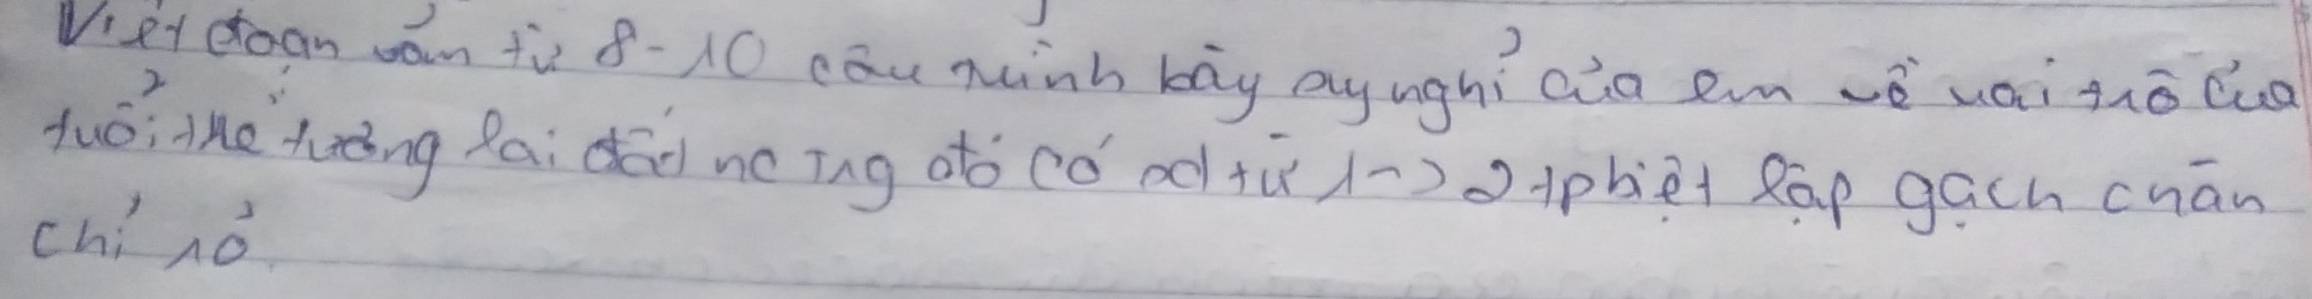 Viết đoạn văn từ 8-10 câu trình bày suy nghỉ của em về vai trò của
tuổi trẻ tương lai đất nc trg đó có sd từ 1->2 tp biệt lập gạch chân
chỉ rỏ